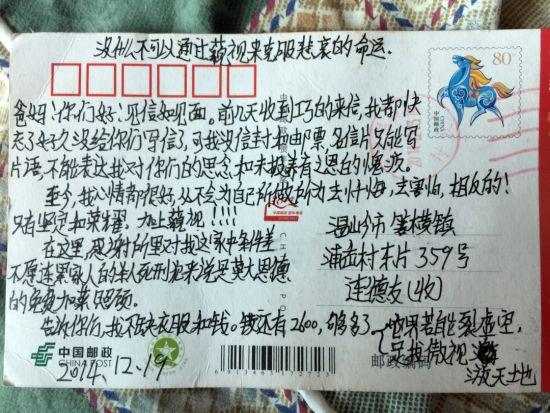 没什么不可以通过藐视来克服悲哀的命运.
爸妈!你们好!见信如见面。前几天收到巧的来信,我都快
忘了好久没给你们写信,可我没信封和邮票,名信片只能写
片语,不能表达我对你们的思念和未报养育之恩的愧疚。
至今,我心情都很好,从不会为自己所做行为去忏悔,去害怕,相反的!
只有坚定和荣耀。加上藐视!!!!
在这里,恩谢所里对我这家中条件差
不愿连累家人的半人死刑犯来说是莫大恩德
的免费加菜照顾。
告诉你们,我不缺衣服和钱。钱还有2600,够多了
世界若能裂虚里,
只我傲视
泼天地
2014.12.19
80分
中国邮政
CHINA
温州市 镇
浦 村 片359号
连德友(收)
中国邮政
CHINA POST
邮政编码